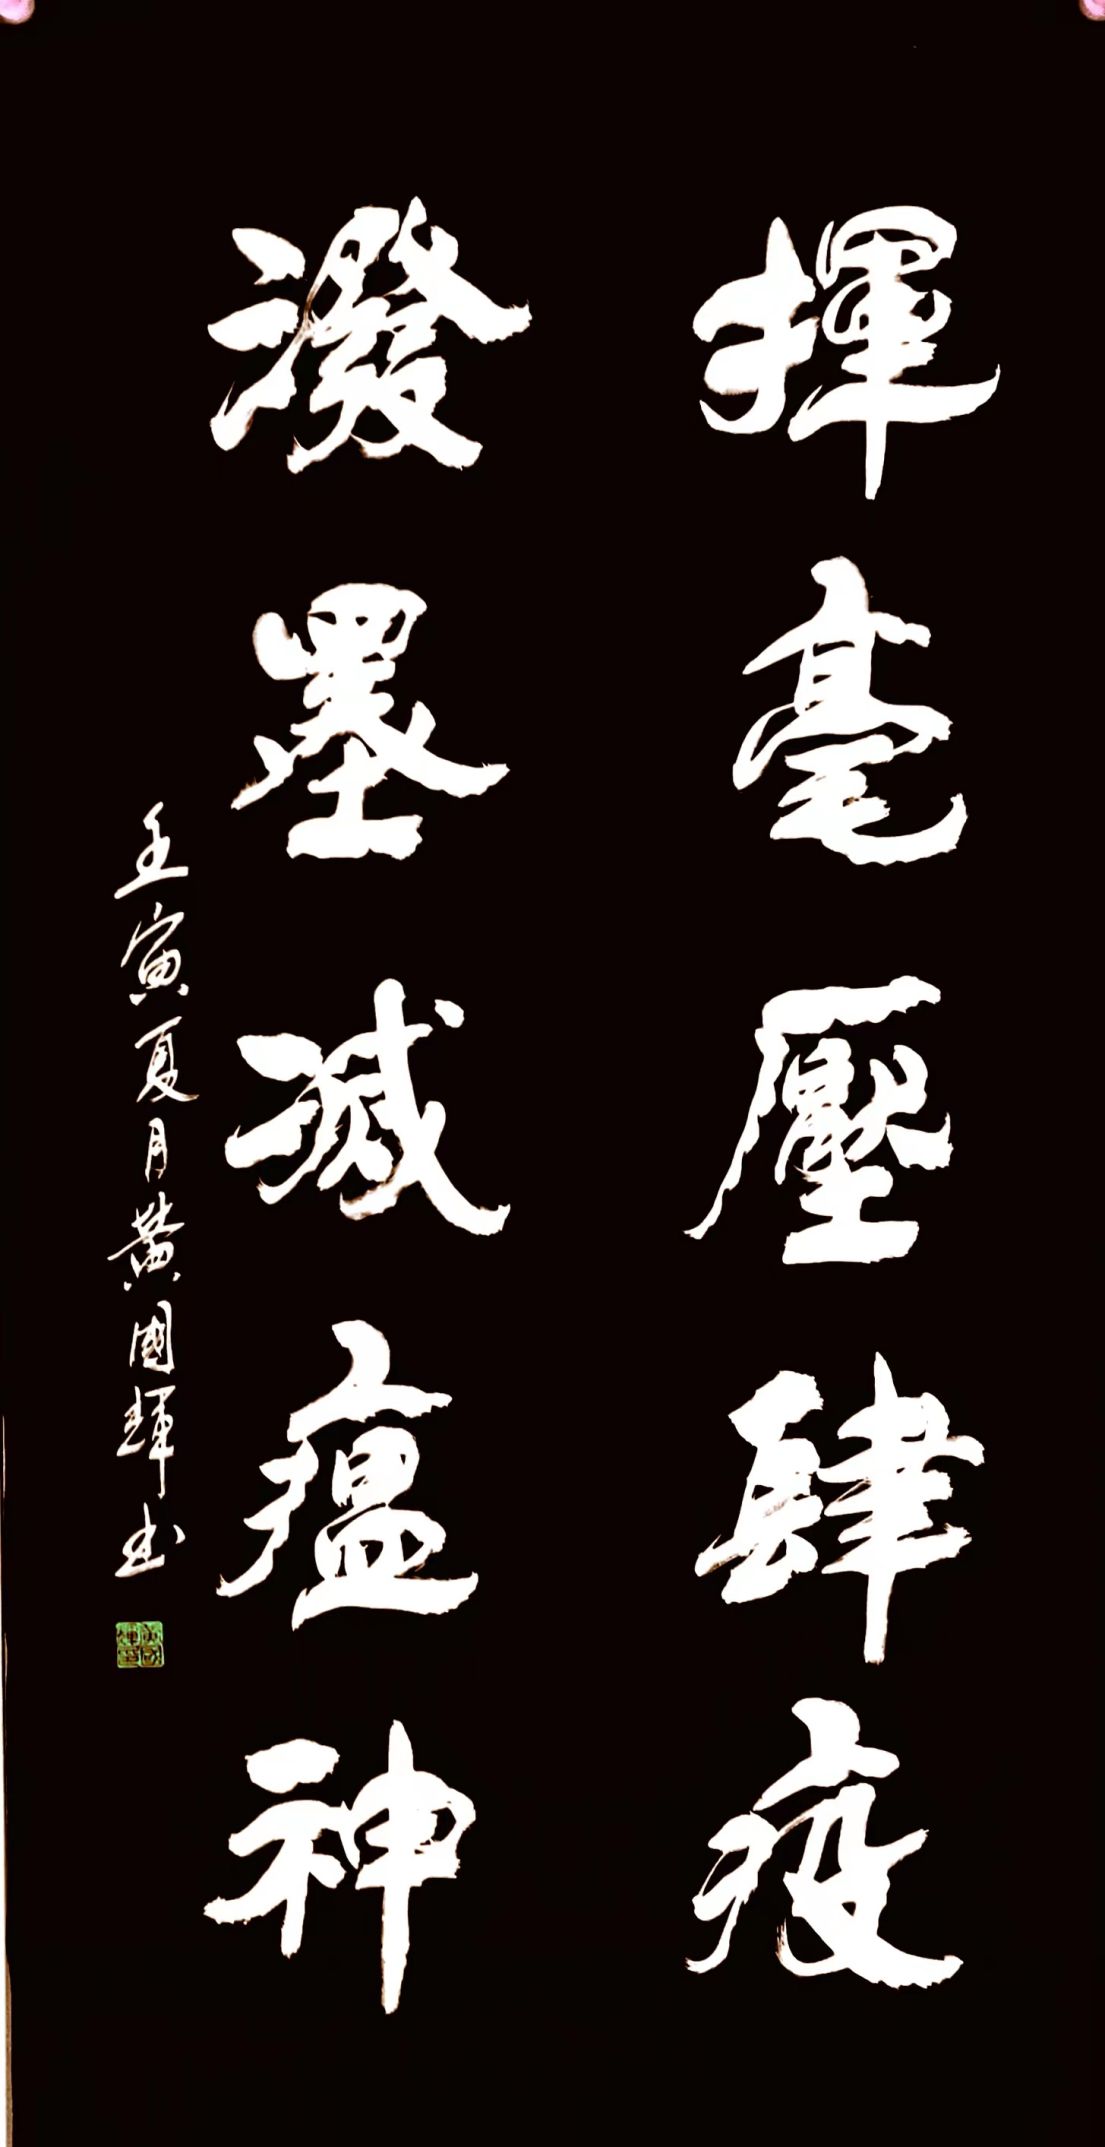 揮毫壓肆疫
潑墨滅瘟神
壬寅夏月黄國輝书